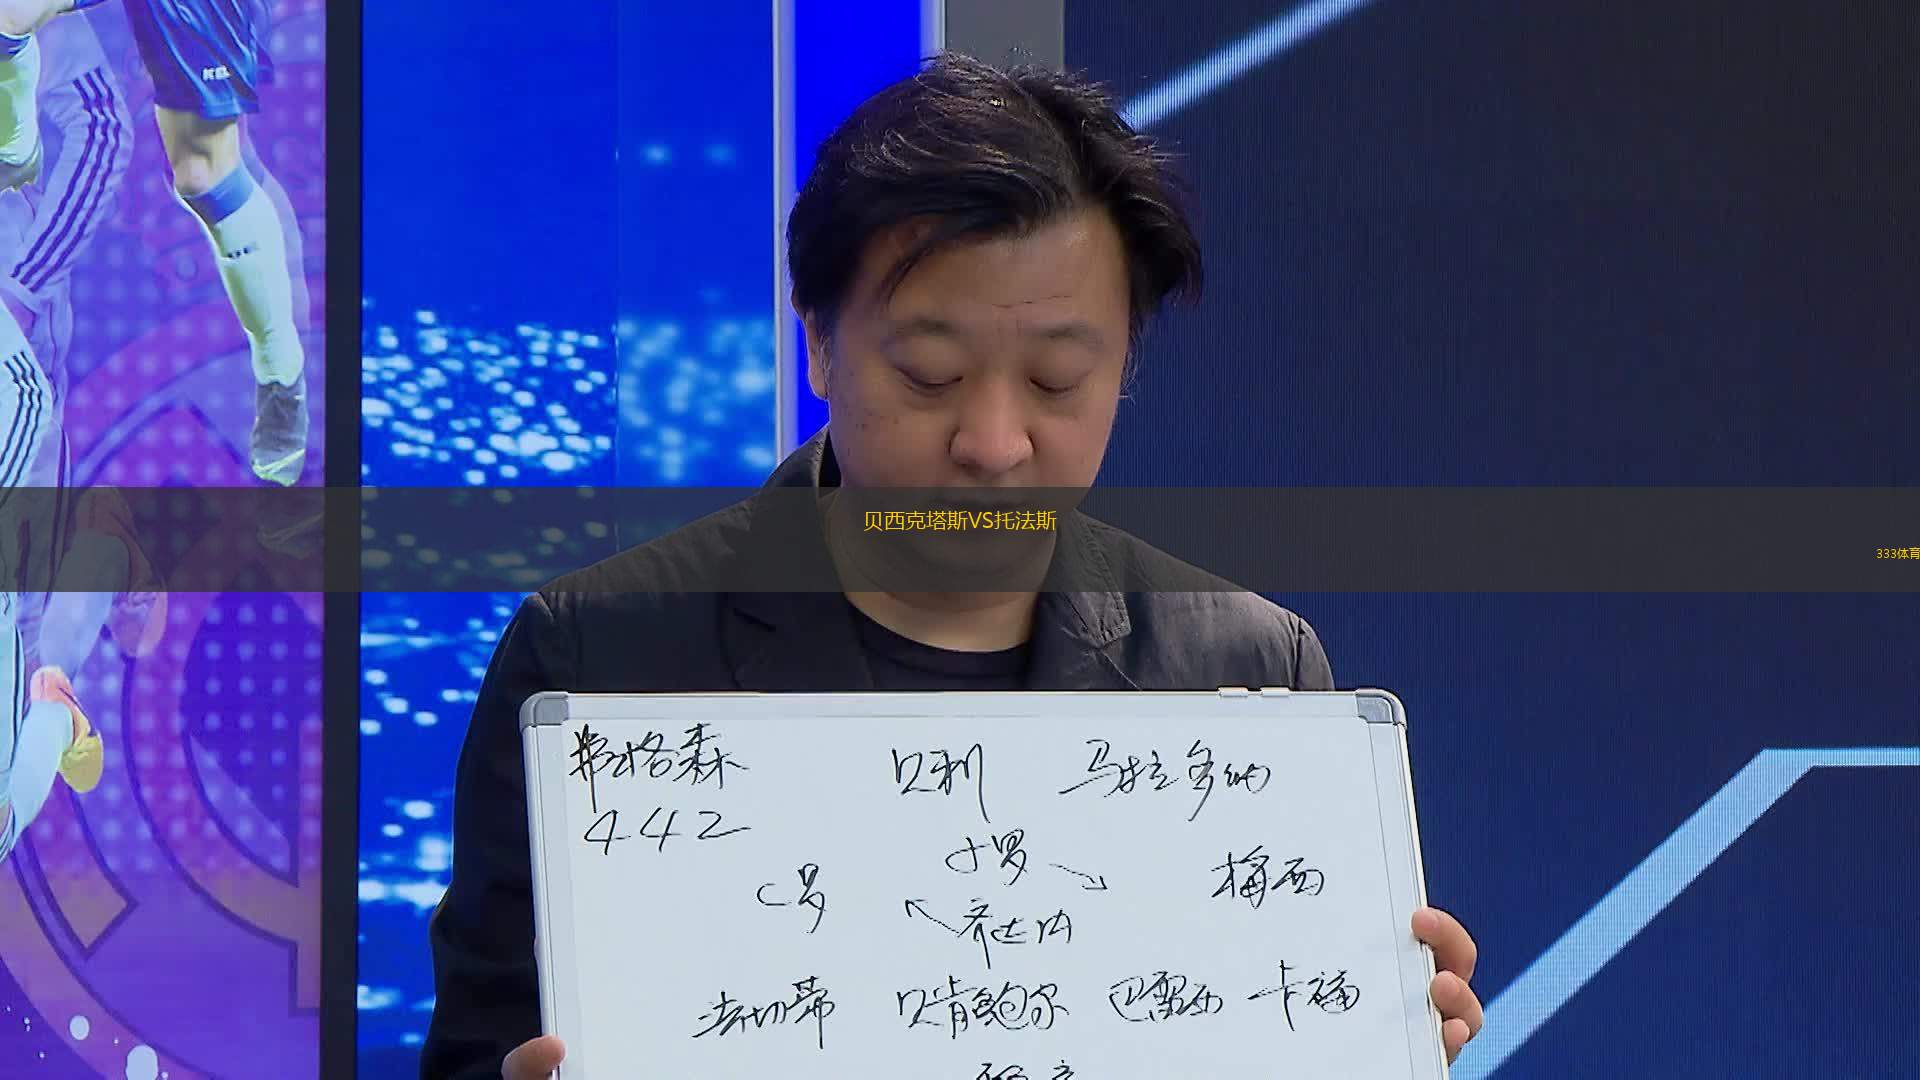 贝西克塔斯VS托法斯
333体育
弗格森 贝利 马拉多纳
442
小罗
C罗 梅西
齐达内
法切蒂 贝肯鲍尔 巴雷西 卡福